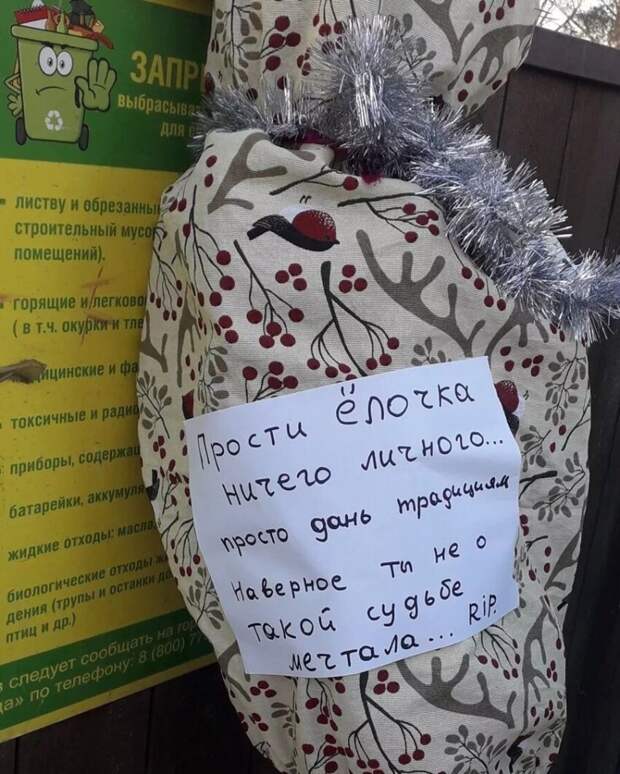 ЗАПР
выбрасыва
для
листву и обрезанны
строительный мусо
помещений).
горящие и легково
( в т.ч. окурки и тле
ицинские и фа
токсичные и ради
приборы, содержа
батарейки, аккумуля
жидкие отходы: масла
биологические отходы ж
дения (трупы и останки до
птиц и др.)
следует сообщать на гор
да» по телефону: 8 (800) 7
Прости ёлочка
ничего личного...
просто дань традициям
Наверное ты не о
такой судьбе
мечтала... RiP.